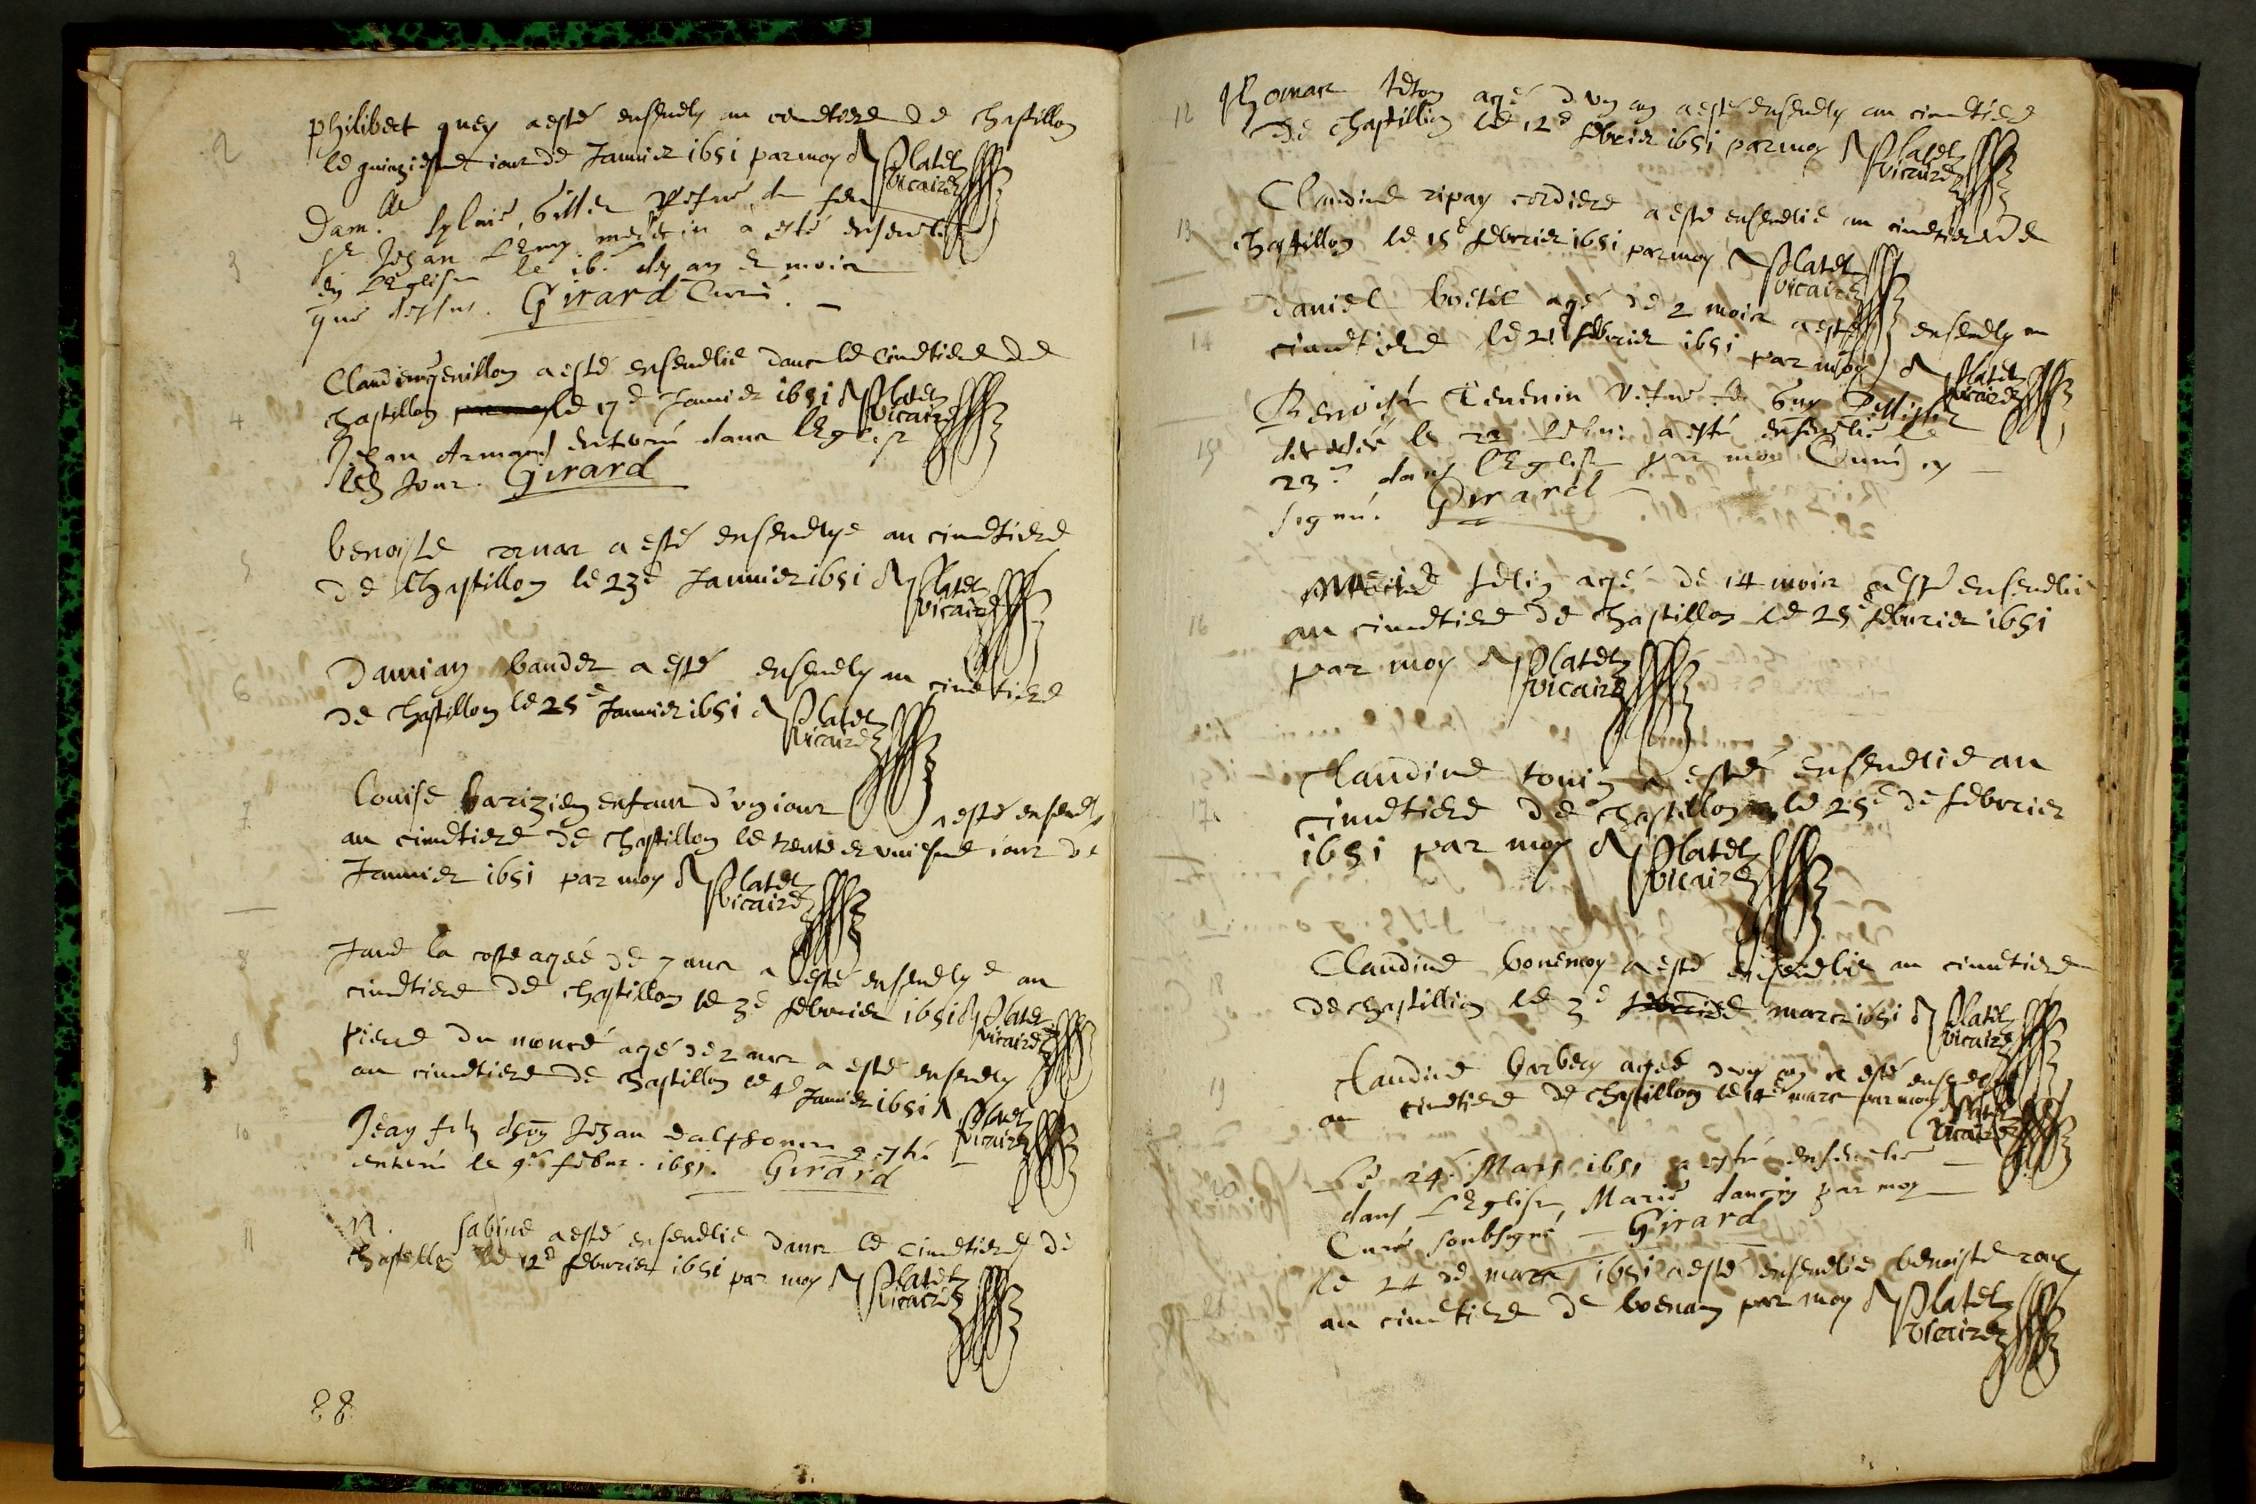 2
philibert quey a esté ensevely au cimetiere de chastillon
le quinziesme iour de Januier 1651 par moy Platel
vicaire
3
Dam.lle Sylvie Gillet vefve de feu
Sr Jehan Remy medecin a esté ensevelie
en l'Eglise le 16. des an & mois
que dessus. Girard Curé.
4
Claudine Genillon a esté ensevelie dans le Cimetiere de
chastillon le 17e Januier 1651 Platel
vicaire
Jehan Armand enterré dans l'Eglise
led Jour. Girard
5
benoiste a esté ensevelye au cimetiere
de Chastillon le 23e Januier 1651 Platel
vicaire
6
Damian baudet a esté ensevely au cimetiere
de chastillon le 25e Januier 1651 Platel
vicaire
7
louise barizien enfant d'vn iour a esté ensevely
au cimetiere de chastillon le trente et vniesme iour de
Januier 1651 par moy Platel
vicaire
8
Jane la coste agée de 7 ans a esté ensevelye au
cimetiere de chastillon le 3e februier 1651 Platel
vicaire
9
pierre du moncé agé de 2 ans a esté ensevely
au cimetiere de chastillon le 4e Januier 1651 Platel
vicaire
10
Jean filz d'hon Jehan a esté
enterré le 9e febur. 1651. Girard
11
N. sabine a esté ensevelie dans le cimetiere de
chastillon le 12e februier 1651 par moy Platel
vicaire
88
12
Thomas teton agé d vn an a esté ensevely au cimetiere
de chastillion le 12e februier 1651 par moy Platel
vicaire
13
Claudine ripay cordiere a esté ensevelie au cimetiere de
chastillon le 15e februier 1651 par moy Platel
vicaire
14
Daniel agé de 2 mois a esté ensevely au
cimetiere le 21 februier 1651 par moy Platel
vicaire
15
Benoiste Tevenin vefve de Guy
decedée le 22 a esté ensevelie le
23e dans l'Eglise par moy Curé
signé. Girard
16
agé de 14 mois a esté ensevelie
au cimetiere de chastillon le 25e februier 1651
par moy Platel
vicaire
17
Claudine tonin a esté ensevelie au
cimetiere de chastillon le 25e de februier
1651 par moy Platel
vicaire
18
Claudine bonemoy a esté ensevelie au cimetiere
de chastillion le 3e februier mars 1651 Platel
vicaire
19
Claudine barbery agée d vn an a esté ensevelie
au cimetiere de chastillon le 14e mars par moy Platel
vicaire
20
Le 24e Mars 1651 a esté ensevelie
dans l'Eglise, Marie dancin par moy
Curé soubsigné Girard
21
le 24 de mars 1651 a esté ensevelie benoiste
au cimetiere de par moy Platel
vicaire